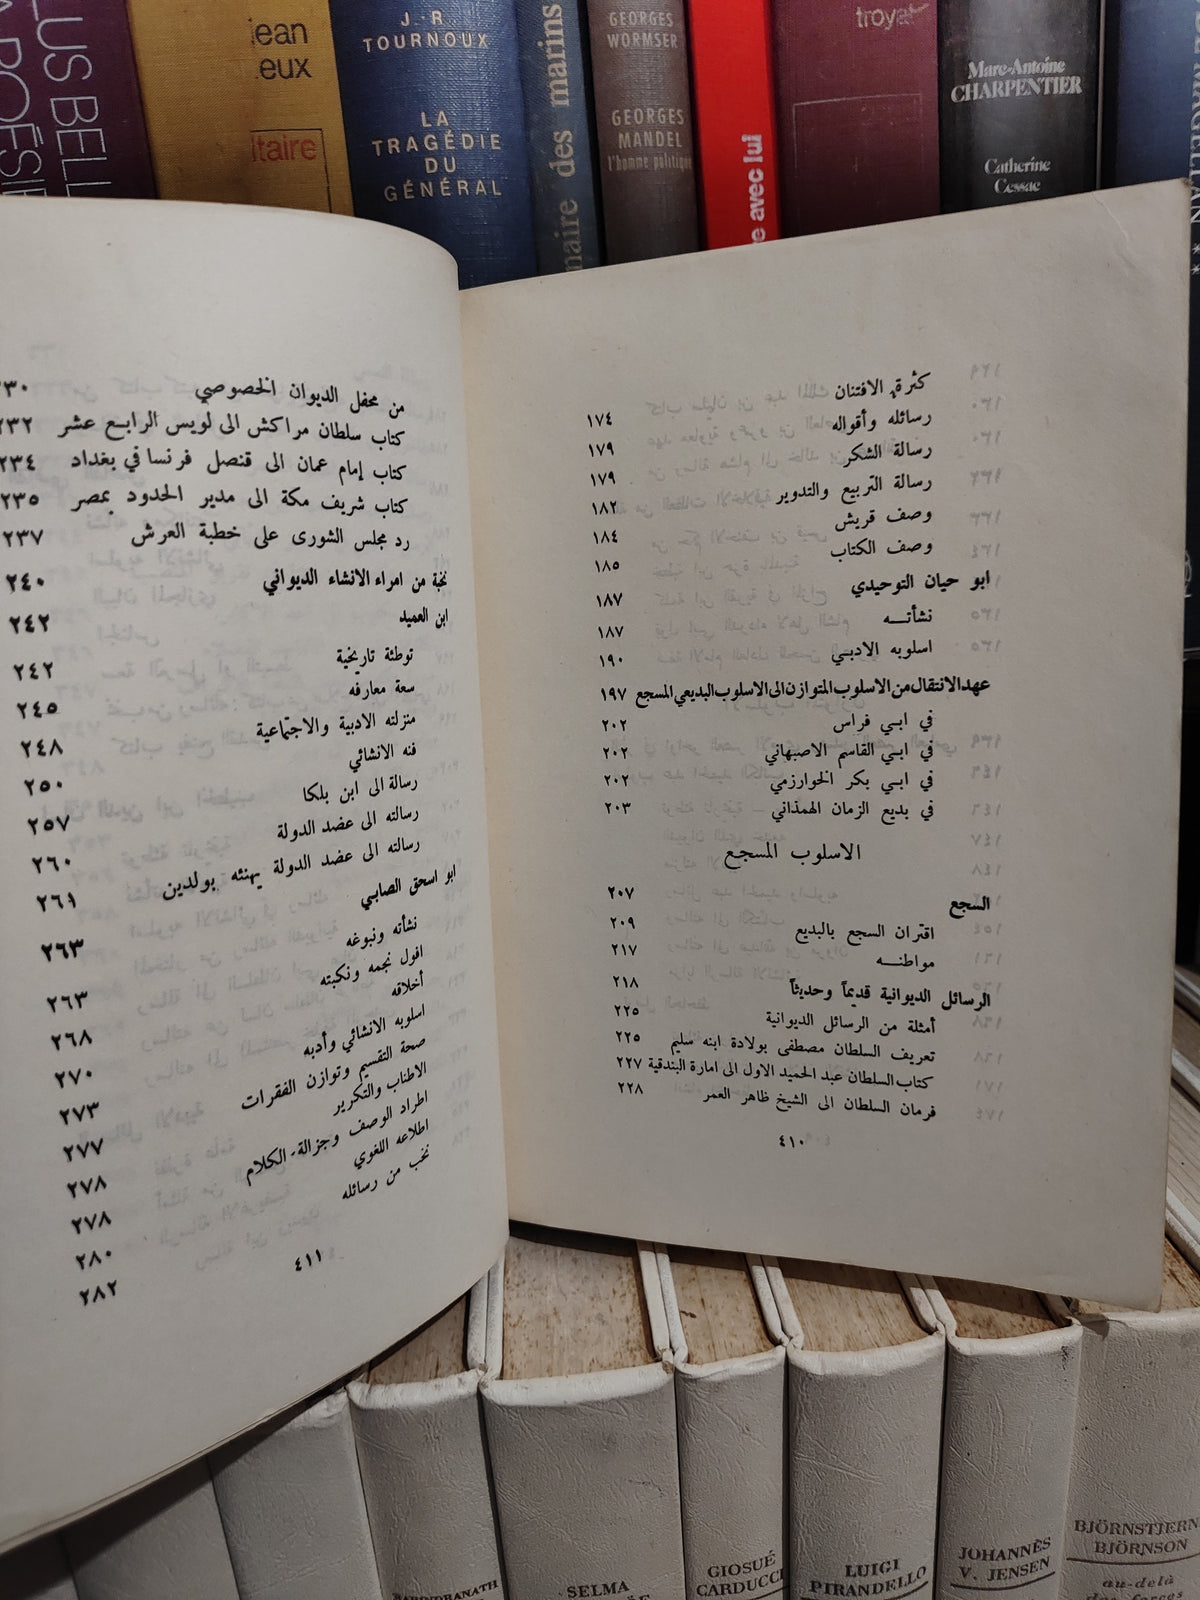 LUS BELL
jean
eux
litaire
J.-R
TOURNOUX
LA
TRAGÉDIE
DU
GÉNÉRAL
naire des marins
GEORGES
WORMSER
GEORGES
MANDEL
l'homme politique
e avec lui
troyat
Marc-Antoine
CHARPENTIER
Catherine
Cessac
كثرة الافتنان ١٧٤
رسائله وأقواله ١٧٩
رسالة الشكر ١٧٩
رسالة التربيع والتدوير ١٨٢
وصف قريش ١٨٤
وصف الكتاب ١٨٥
ابو حيان التوحيدي ١٨٧
نشأتـــه ١٨٧
اسلوبه الادبي ١٩٠
عهد الانتقال من الاسلوب المتوازن الى الاسلوب البديعي المسجع ١٩٧
في ابي فراس ٢٠٢
في ابي القاسم الاصبهاني ٢٠٢
في ابي بكر الخوارزمي ٢٠٢
في بديع الزمان الهمذاني ٢٠٣
الاسلوب المسجع
السجع ٢٠٧
اقتران السجع بالبديع ٢٠٩
مواطنـــه ٢١٧
الرسائل الديوانية قديماً وحديثاً ٢١٨
أمثلة من الرسائل الديوانية ٢٢٥
تعريف السلطان مصطفى بولادة ابنه سليم ٢٢٥
كتاب السلطان عبد الحميد الاول الى امارة البندقية ٢٢٧
فرمان السلطان الى الشيخ ظاهر العمر ٢٢٨
٤١٠
من محفل الديوان الخصوصي ٢٣٠
كتاب سلطان مراكش الى لويس الرابع عشر ٢٣٢
كتاب إمام عمان الى قنصل فرنسا في بغداد ٢٣٤
كتاب شريف مكة الى مدير الحدود بمصر ٢٣٥
رد مجلس الشورى على خطبة العرش ٢٣٧
نخبة من امراء الانشاء الديواني ٢٤٠
ابن العميد ٢٤٢
توطئة تاريخية ٢٤٢
سعة معارفه ٢٤٥
منزلته الادبية والاجتماعية ٢٤٨
فنه الانشائي ٢٥٠
رسالة الى ابن بلكا ٢٥٧
رسالته الى عضد الدولة ٢٦٠
رسالته الى عضد الدولة يهنئه بولدين ٢٦١
ابو اسحق الصابي ٢٦٣
نشأته ونبوغه ٢٦٣
افول نجمه ونكبته ٢٦٨
أخلاقه ٢٧٠
اسلوبه الانشائي وأدبه ٢٧٣
صحة التقسيم وتوازن الفقرات ٢٧٧
الاطناب والتكرير ٢٧٨
اطراد الوصف وجزالة الكلام ٢٧٨
اطلاعه اللغوي ٢٨٠
نخب من رسائله ٢٨٢
٤١١
SELMA
GIOSUÉ
CARDUCCI
LUIGI
PIRANDELLO
JOHANNÈS
V. JENSEN
BJÖRNSTJERN
BJÖRNSON
au-delà
des forces